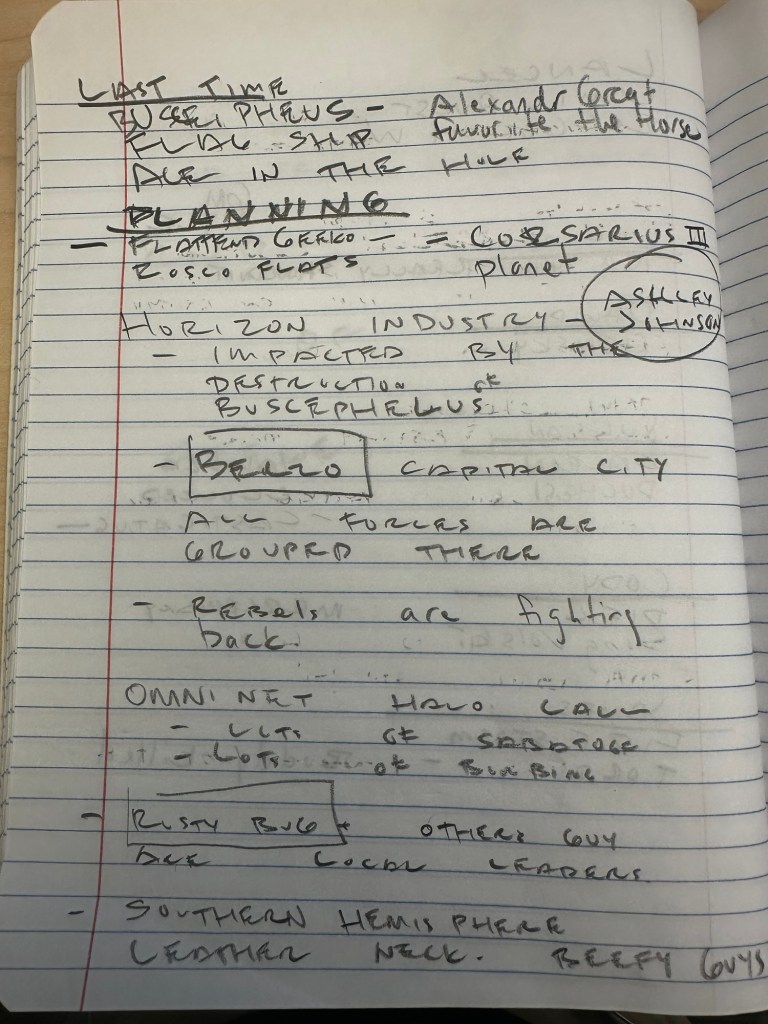 LAST TIME
BUSSEIPHEUS - Alexandr Great
FLAG SHIP favorite the Horse
ACE IN THE HOLE
PLANNING
- FLATTEND GEEKO - = CORSARIUS III
ROSCO FLATS planet
HORIZON INDUSTRY - ASHLEY JOHNSON
- IMPACTED BY THE
DESTRUCTION OF
BUSCEPHELUS
- BELZO CAPITAL CITY
ALL FORCES ARE
GROUPED THERE
- REBELS are fighting
back.
OMNI NET HALO CALL
- LOTS OF SABATOGE
- LOTS OF BOMBING
- RUSTY BUG + OTHER GUY
ARE LOCAL LEADERS
- SOUTHERN HEMISPHERE
LEATHER NECK. BEEFY GUYS